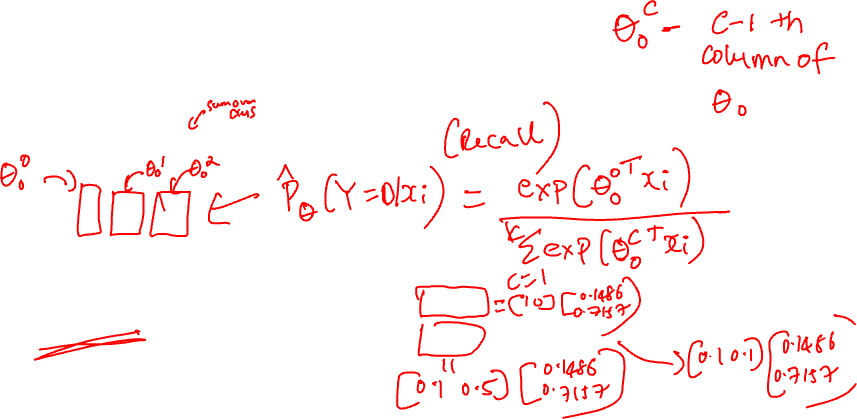 θ₀ᶜ - C-1 th
column of
θ₀
sum over
(Recall)
θ₀⁰ θ₀¹ θ₀²
P̂_θ(Y=0|xi) = exp(θ₀⁰ᵀxi)
Σ exp(θ₀ᶜᵀxi)
c=1
= [1 0] [0.1486
0.7157]
[0.1 0.5] [0.1486
0.7157]
[0.1 0.1] [0.1486
0.7157]